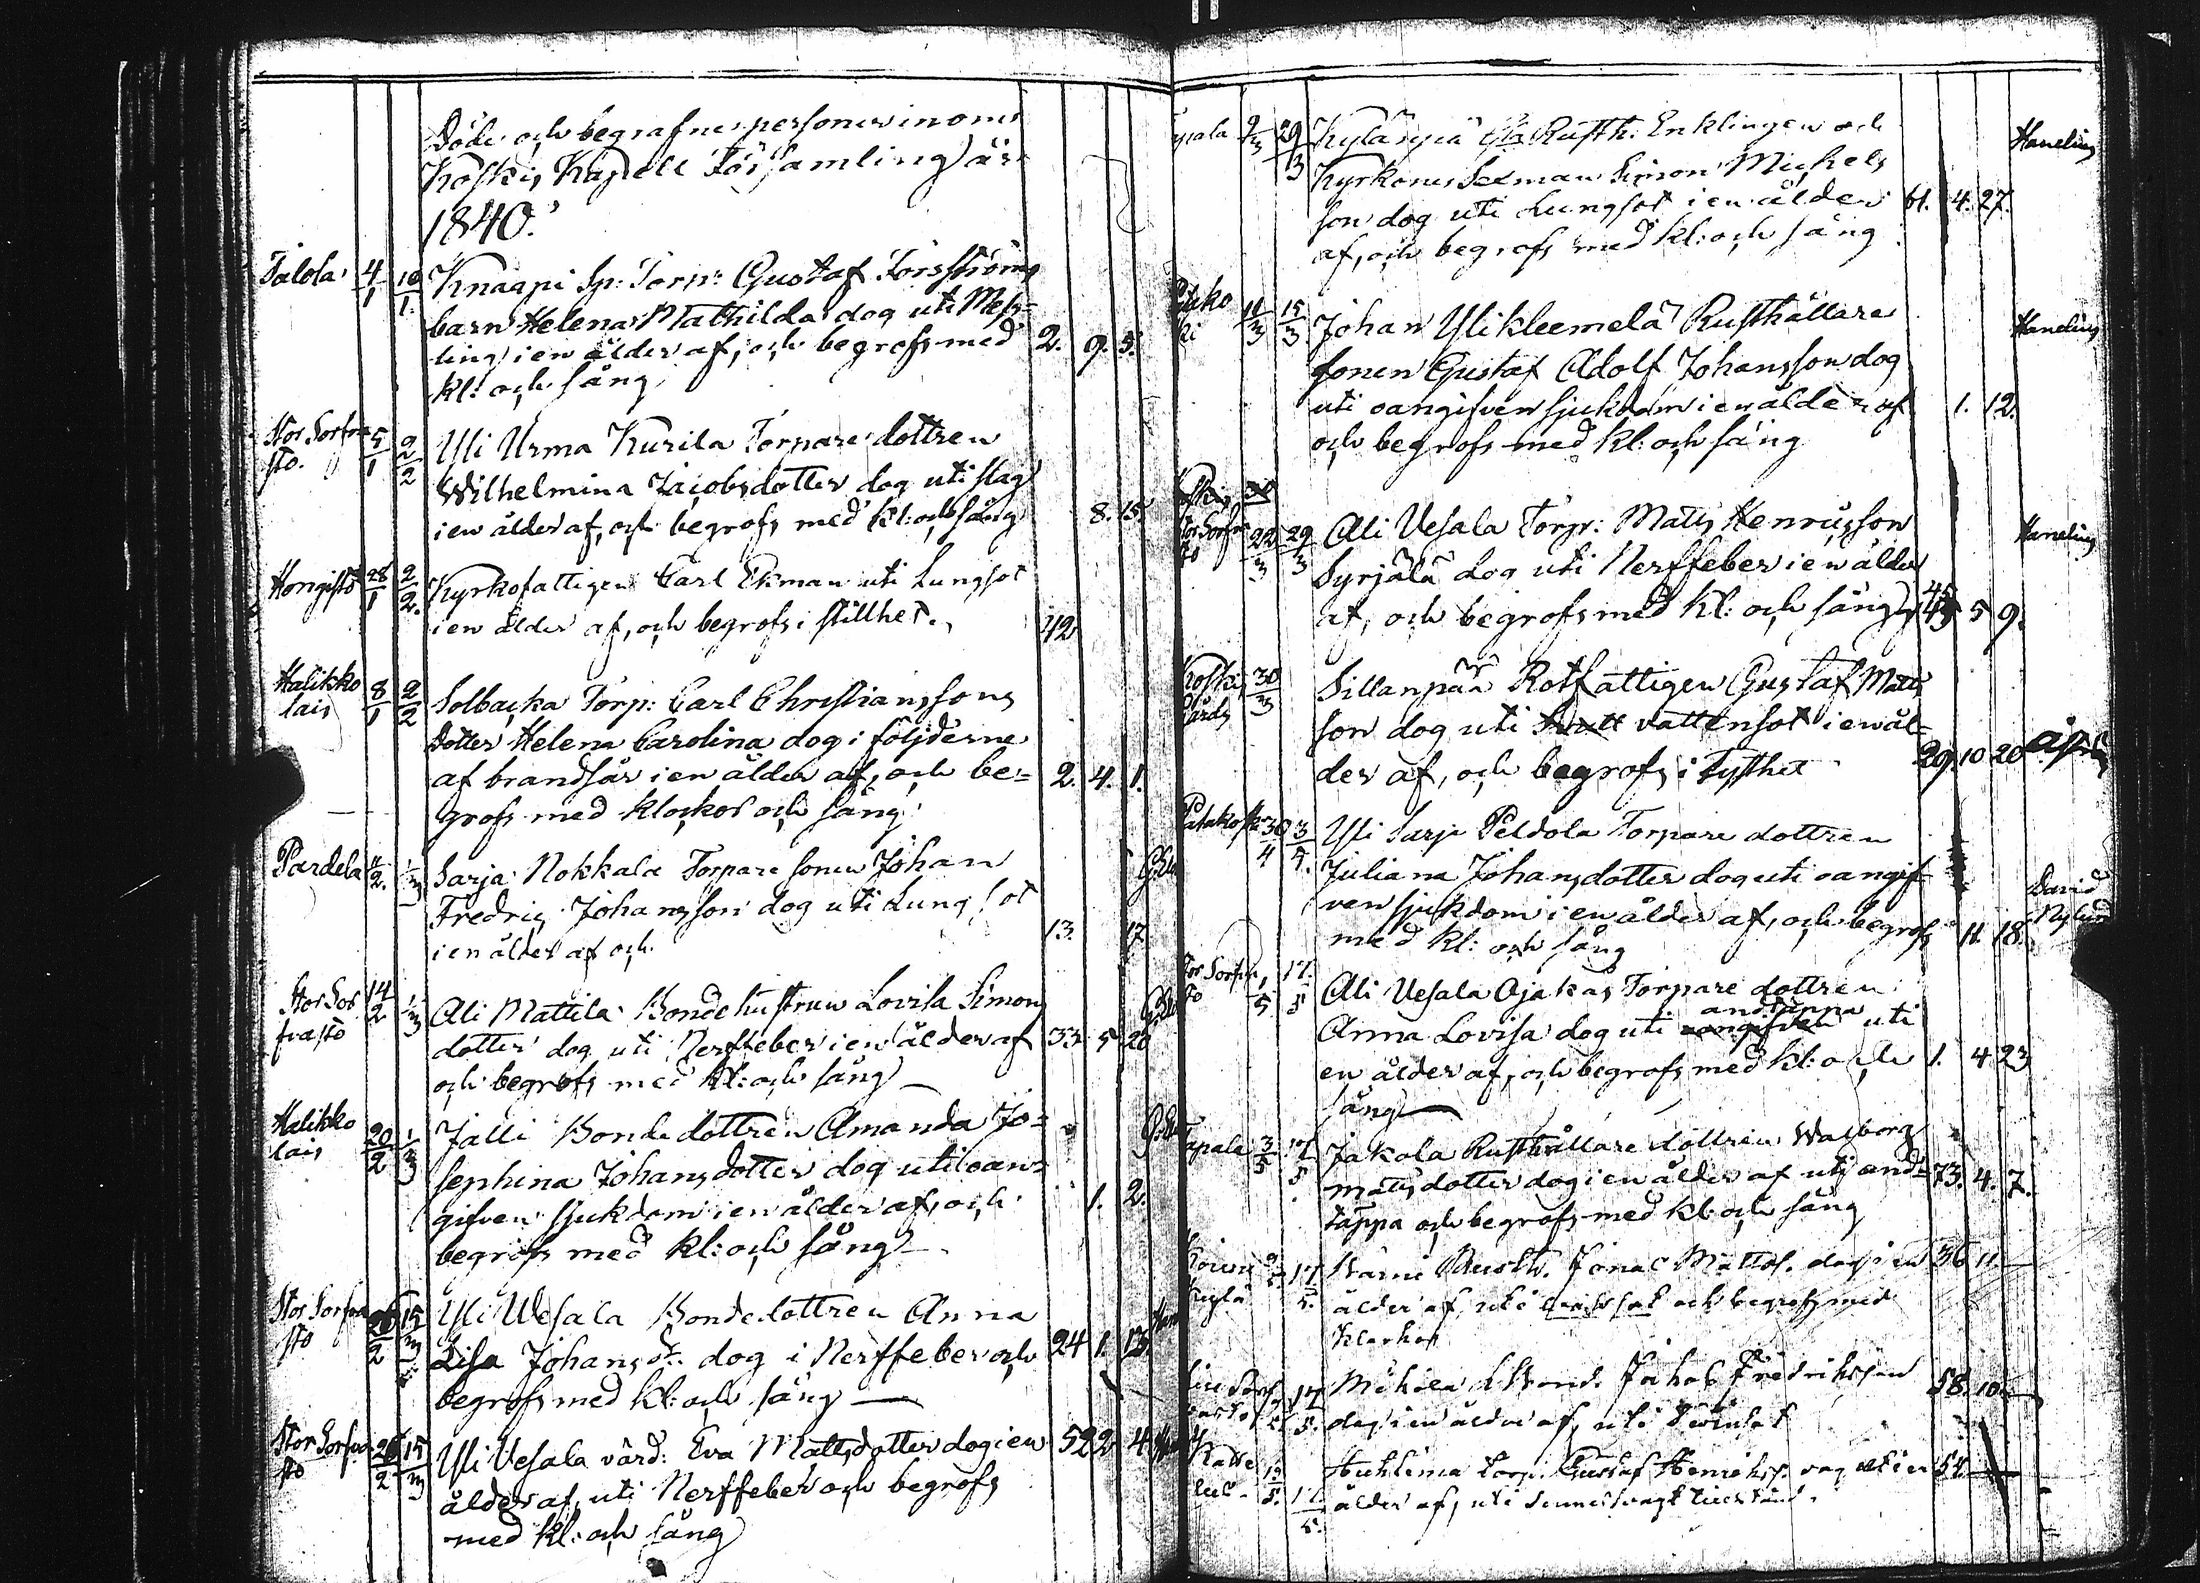 Döde och begrafne personer inom
Koskis Kapell Församling år
1840.
Talola 4/1 10/1 Knaapi Sp: Torp: Gustaf Forsströms
barn Helena Mathilda dog uti Mess-
ling i en ålder af, och begrofs med 2. 9. 5.
kl: och sång
Stor Sorfva 5/1 2/2 Yli Urma Kurila Torpare dottren
sto. Wilhelmina Jacobsdotter dog uti slag
i en ålder af, och begrofs med kl: och sång 8. 15.
Hongisto 28/1 2/2 Kyrkofattigen Carl Ekman uti Lungsot
i en ålder af, och begrofs i stillhet. 42
Halikko 8/1 2/2 Solbacka Torp: Carl Christianssons
lais dotter Helena Carolina dog i följderne
af brandsår i en ålder af, och be= 2. 4. 1.
grofs med klockor och sång
Pardela /2. 1/3 Sarja Nokkala Torpare sonen Johan
Fredric Johansson dog uti Lungsot
i en ålder af och 13. 17
Stor Sor 14/2 1/3 Ali Mattila Bondehustrun Lovisa Simons
frasto dotter dog uti Nerffeber i en ålder af 33 5 20
och begrofs med kl: och sång
Halikko 20/2 1/3 Jalli Bondedottren Amanda Jo=
lais sephina Johansdotter dog uti oan=
gifven sjukdom i en ålder af, och 1. 2.
begrofs med kl: och sång
Stor Sorfva 15/3 Yli Wesala Bondedottren Anna
sto Lisa Johansdr. dog i Nerffeber och 24 1. 13
begrofs med kl: och sång
Stor Sorfva 26/2 15/3 Yli Vesala värd: Eva Mattsdotter dog i en 52 2 4
sto ålder af, uti Nerffeber och begrofs
med kl: och sång
9/3 29/3 Rusth: Enklingen och Hanelius
Kyrkones Sexman Simon Michels
son dog uti Lungsot i en ålder 61. 4. 27.
af, och begrofs med kl: och sång
11/3 15/3 Johan Ylikleemelä Rusthållare Hanelius
sonen Gustaf Adolf Johansson dog
uti oangifven sjukdom i en ålder af 1. 12.
och begrofs med kl: och sång
22/3 29/3 Ali Vesala Torpr: Matts Henricsson Hanelius
Syrjälä dog uti Nerffeber i en ålder
af, och begrofs med kl: och sång 45 5 9.
Koskis 30/3 Sillanpää Rotfattigen Gustaf Matts
Gårds son dog uti vattensot i en ål-
der af, och begrofs i tysthet 29. 10 20
Patakoski 30/4 3/5. Yli Sarja Peldola Torpare dottren
Juliana Johansdotter dog uti oangif David
ven sjukdom i en ålder af, och begrofs 11. 18. Nylund
med kl: och sång
17/5 Ali Vesala Ojakas Torpare dottren
andtäppa
Anna Lovisa dog uti oangifven uti
en ålder af, och begrofs med kl: och 1. 4 23
sång
3/5 17/5 Jakola Rusthållare dottren Walborg
Matsdotter dog i en ålder af uti and= 73. 4. 7.
täppa och begrofs med kl: och sång
17/5. Rusth. Jonas Mattss. dog i en 36 11
ålder af, uti och begrofs med
Klockor
17/5. Jakob Fredriksson 58. 10.
dog i en ålder af, uti
Torp. Gustaf Henrikss. dog uti en 54
17/5. ålder af, uti sinnessvagt tillstånd.